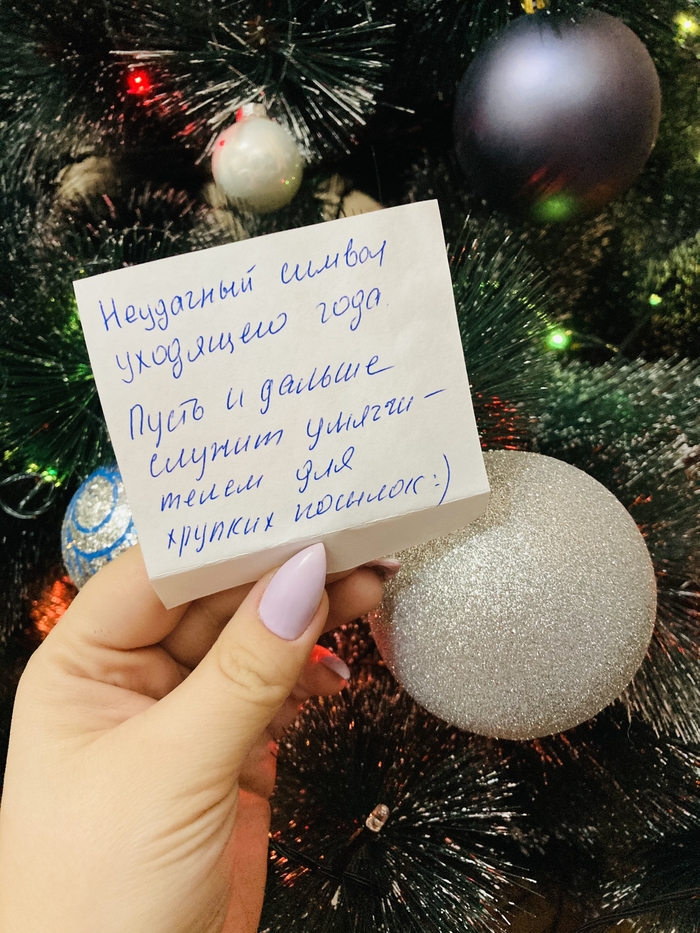 Неудачный символ
уходящего года.
Пусть и дальше
служит умягчи-
телем для
хрупких посылок:)